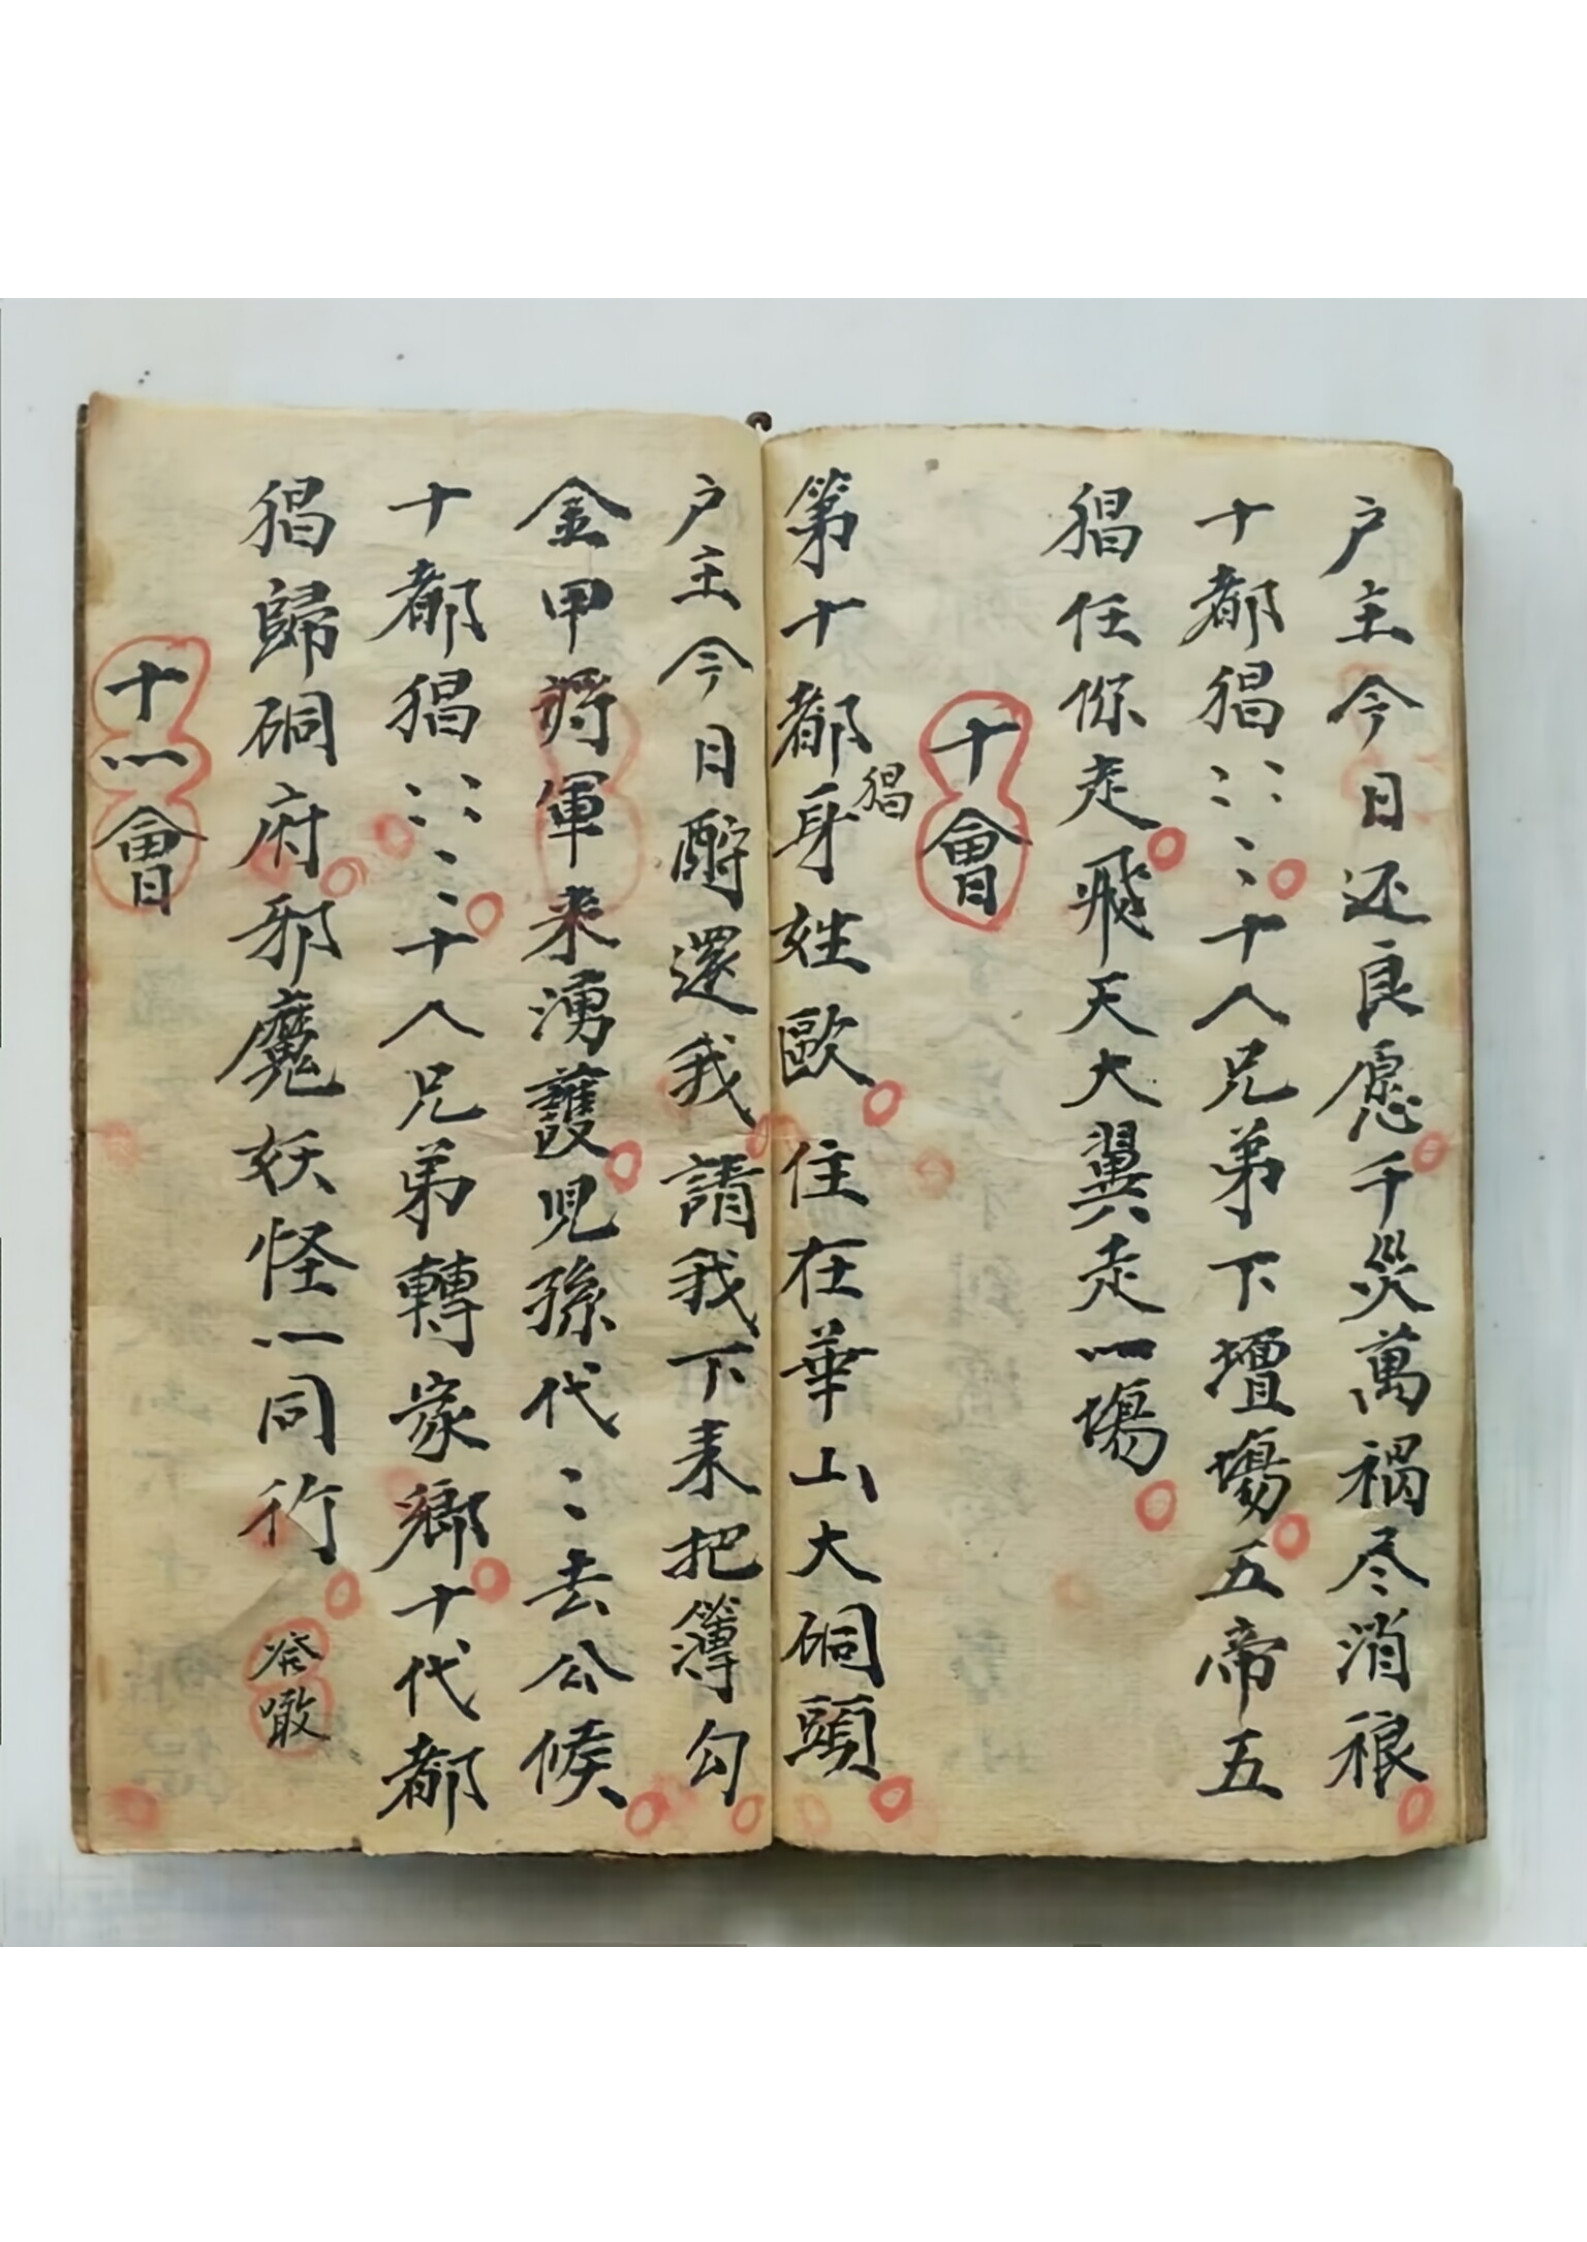 户主今日还良愿千災萬禍尽消䄻
十都猖⺀⺀⺀十人兄弟下壇場五帝五
猖任你走飛天大翼走一場
十會
第十都猖身姓歐住在華山大硐頭
户主今日酧還我請我下来把簿勾
金甲将軍来湧護児孫代⺀去公候
十都猖⺀⺀⺀十人兄弟轉家鄉十代都
猖歸硐府邪魔妖怪一同行
發噉
十一會